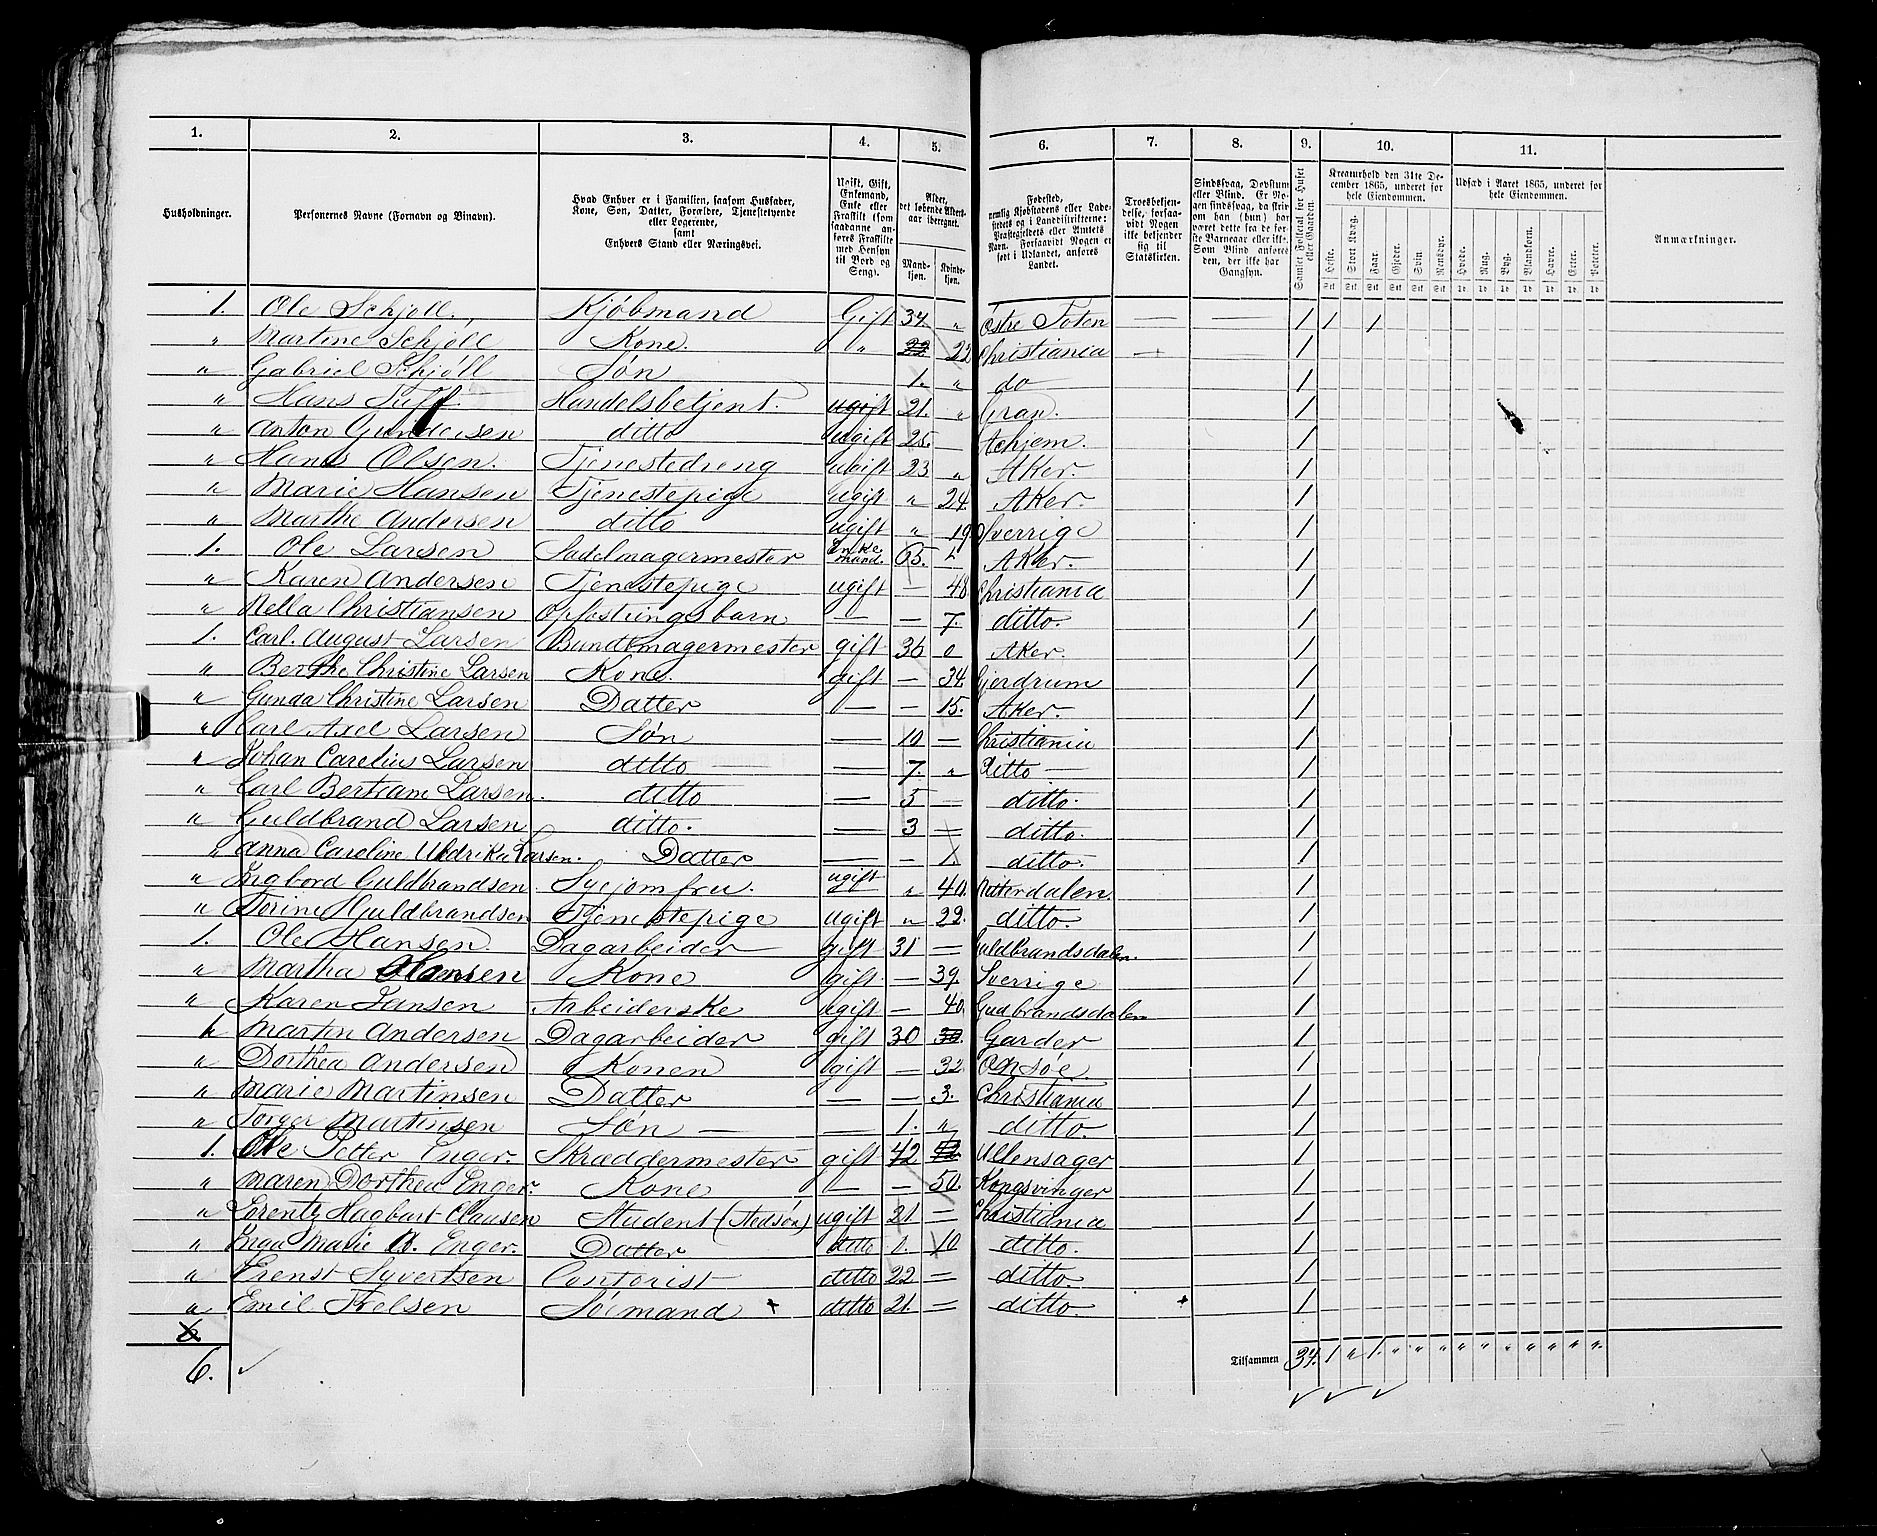 1. 2. 3. 4. 5. 6. 7. 8. 9. 10. 11.
Husholdninger.
Personernes Navne (Fornavn og Binavn).
Hvad Enhver er i Familien, saasom Husfader, Kone, Søn, Datter, Forældre, Tjenestetyende eller Logerende, samt Enhvers Stand eller Næringsvei.
Ugift, Gift, Enkemand, Enke eller Fraskilt (som saadanne anføres Fraskilte med Hensyn til Bord og Seng).
Alder, det løbende Aldersaar iberegnet.
Mandkjøn. Kvindekjøn.
Fødested, nemlig Kjøbstadens eller Ladestedets og i Landdistrikterne: Præstegjeldets eller Amtets Navn. Forsaavidt Nogen er født i Udlandet, anføres Landet.
Troesbekjendelse, forsaavidt Nogen ikke bekjender sig til Statskirken.
Sindssvag, Døvstum eller Blind. Er Nogen sindssvag, da skrives om han (hun) har været dette fra de første Barneaar eller ikke. Som Blind anføres den, der ikke har Gangsyn.
Samlet Folketal for Huset eller Gaarden.
Kreaturhold den 31te December 1865, underet for hele Eiendommen.
Heste. Stort Kvæg. Faar. Gjeder. Svin. Rensdyr.
Udsæd i Aaret 1865, underet for hele Eiendommen.
Hvede. Rug. Byg. Blandkorn. Havre. Erter. Poteter.
Anmærkninger.
1. Ole Schjøll. Kjøbmand Gift 34. " Østre Toten — — 1 1 1
" Martine Schjøll Kone. " 22 22 Christiania — 1
" Gabriel Schjøll Søn 1. " do 1
" Hans Tuft Handelsbetjent. ugift 21. " Gran. 1
" Anton Gundersen ditto ugift 25. 1
" Hans Olsen. Tjenestedreng ugift 23 " Aker. 1
" Marie Hansen Tjenestepige Ugift " 24. Aker. 1
" Marthe Andersen ditto ugift " 19 Sverrige 1
1. Ole Larsen Sadelmagermester Enkemand. 65. " Aker. 1
" Karen Andersen Tjenestepige ugift — 48 Christiania 1
" Nella Christiansen Opfostringsbarn — — 7. ditto. 1
1. Carl August Larsen Bundtmagermester gift 36 0 Aker. 1
" Berthe Christine Larsen Kone. gift — 34. Gjerdrum 1
" Gunda Christine Larsen Datter — — 15. Aker. 1
" Carl Axel Larsen Søn — 10 — Christiania 1
" Johan Carelius Larsen ditto — 7. " Ditto — 1
" Carl Bertram Larsen. ditto — 5 — ditto. 1
" Guldbrand Larsen ditto. — 3 — ditto. 1
" Anna Caroline Uldrikka Larsen. Datter — — 1. ditto. 1
" Ingebord Guldbrandsen Syejomfru. ugift " 40. Nitterdalen. 1
" Torine Guldbrandsen Tjenestepige ugift " 22. ditto. 1
1. Ole Hansen. Dagarbeider gift 31 — Guldbrandsdalen. 1
" Martha Hansen Kone gift — 39. Sverrige 1
" Karen Jansen Arbeiderske ugift — 40. Gudbrandsdalen 1
" Martin Andersen Dagarbeider gift 30 30. Garder 1
" Dorthea Andersen Konen gift — 32. Onsøe. 1
" Marie Martinsen Datter — — 3. Christiania 1
" Torger Martinsen Søn — — 1. " ditto. 1
1. Ole Petter Enger. Skræddermester gift 42 42 Ullensager 1
" Maren Dorthea Enger. Kone — — 50. Kongsvinger 1
" Lorentz Hagbart Clausen Student (Stedsøn) ugift 21 — Christiania 1
" Inga Marie B. Enger. Datter ditto 0. 10 ditto. 1
" Erenst Syvertsen Contorist ditto 22 — ditto. 1
" Emil Frelsen Søemand + ditto 21. — ditto. + 1
6.
6. ✓ Tilsammen 34. 1 " 1. " " " " " " " " " "
✓ ✓ ✓